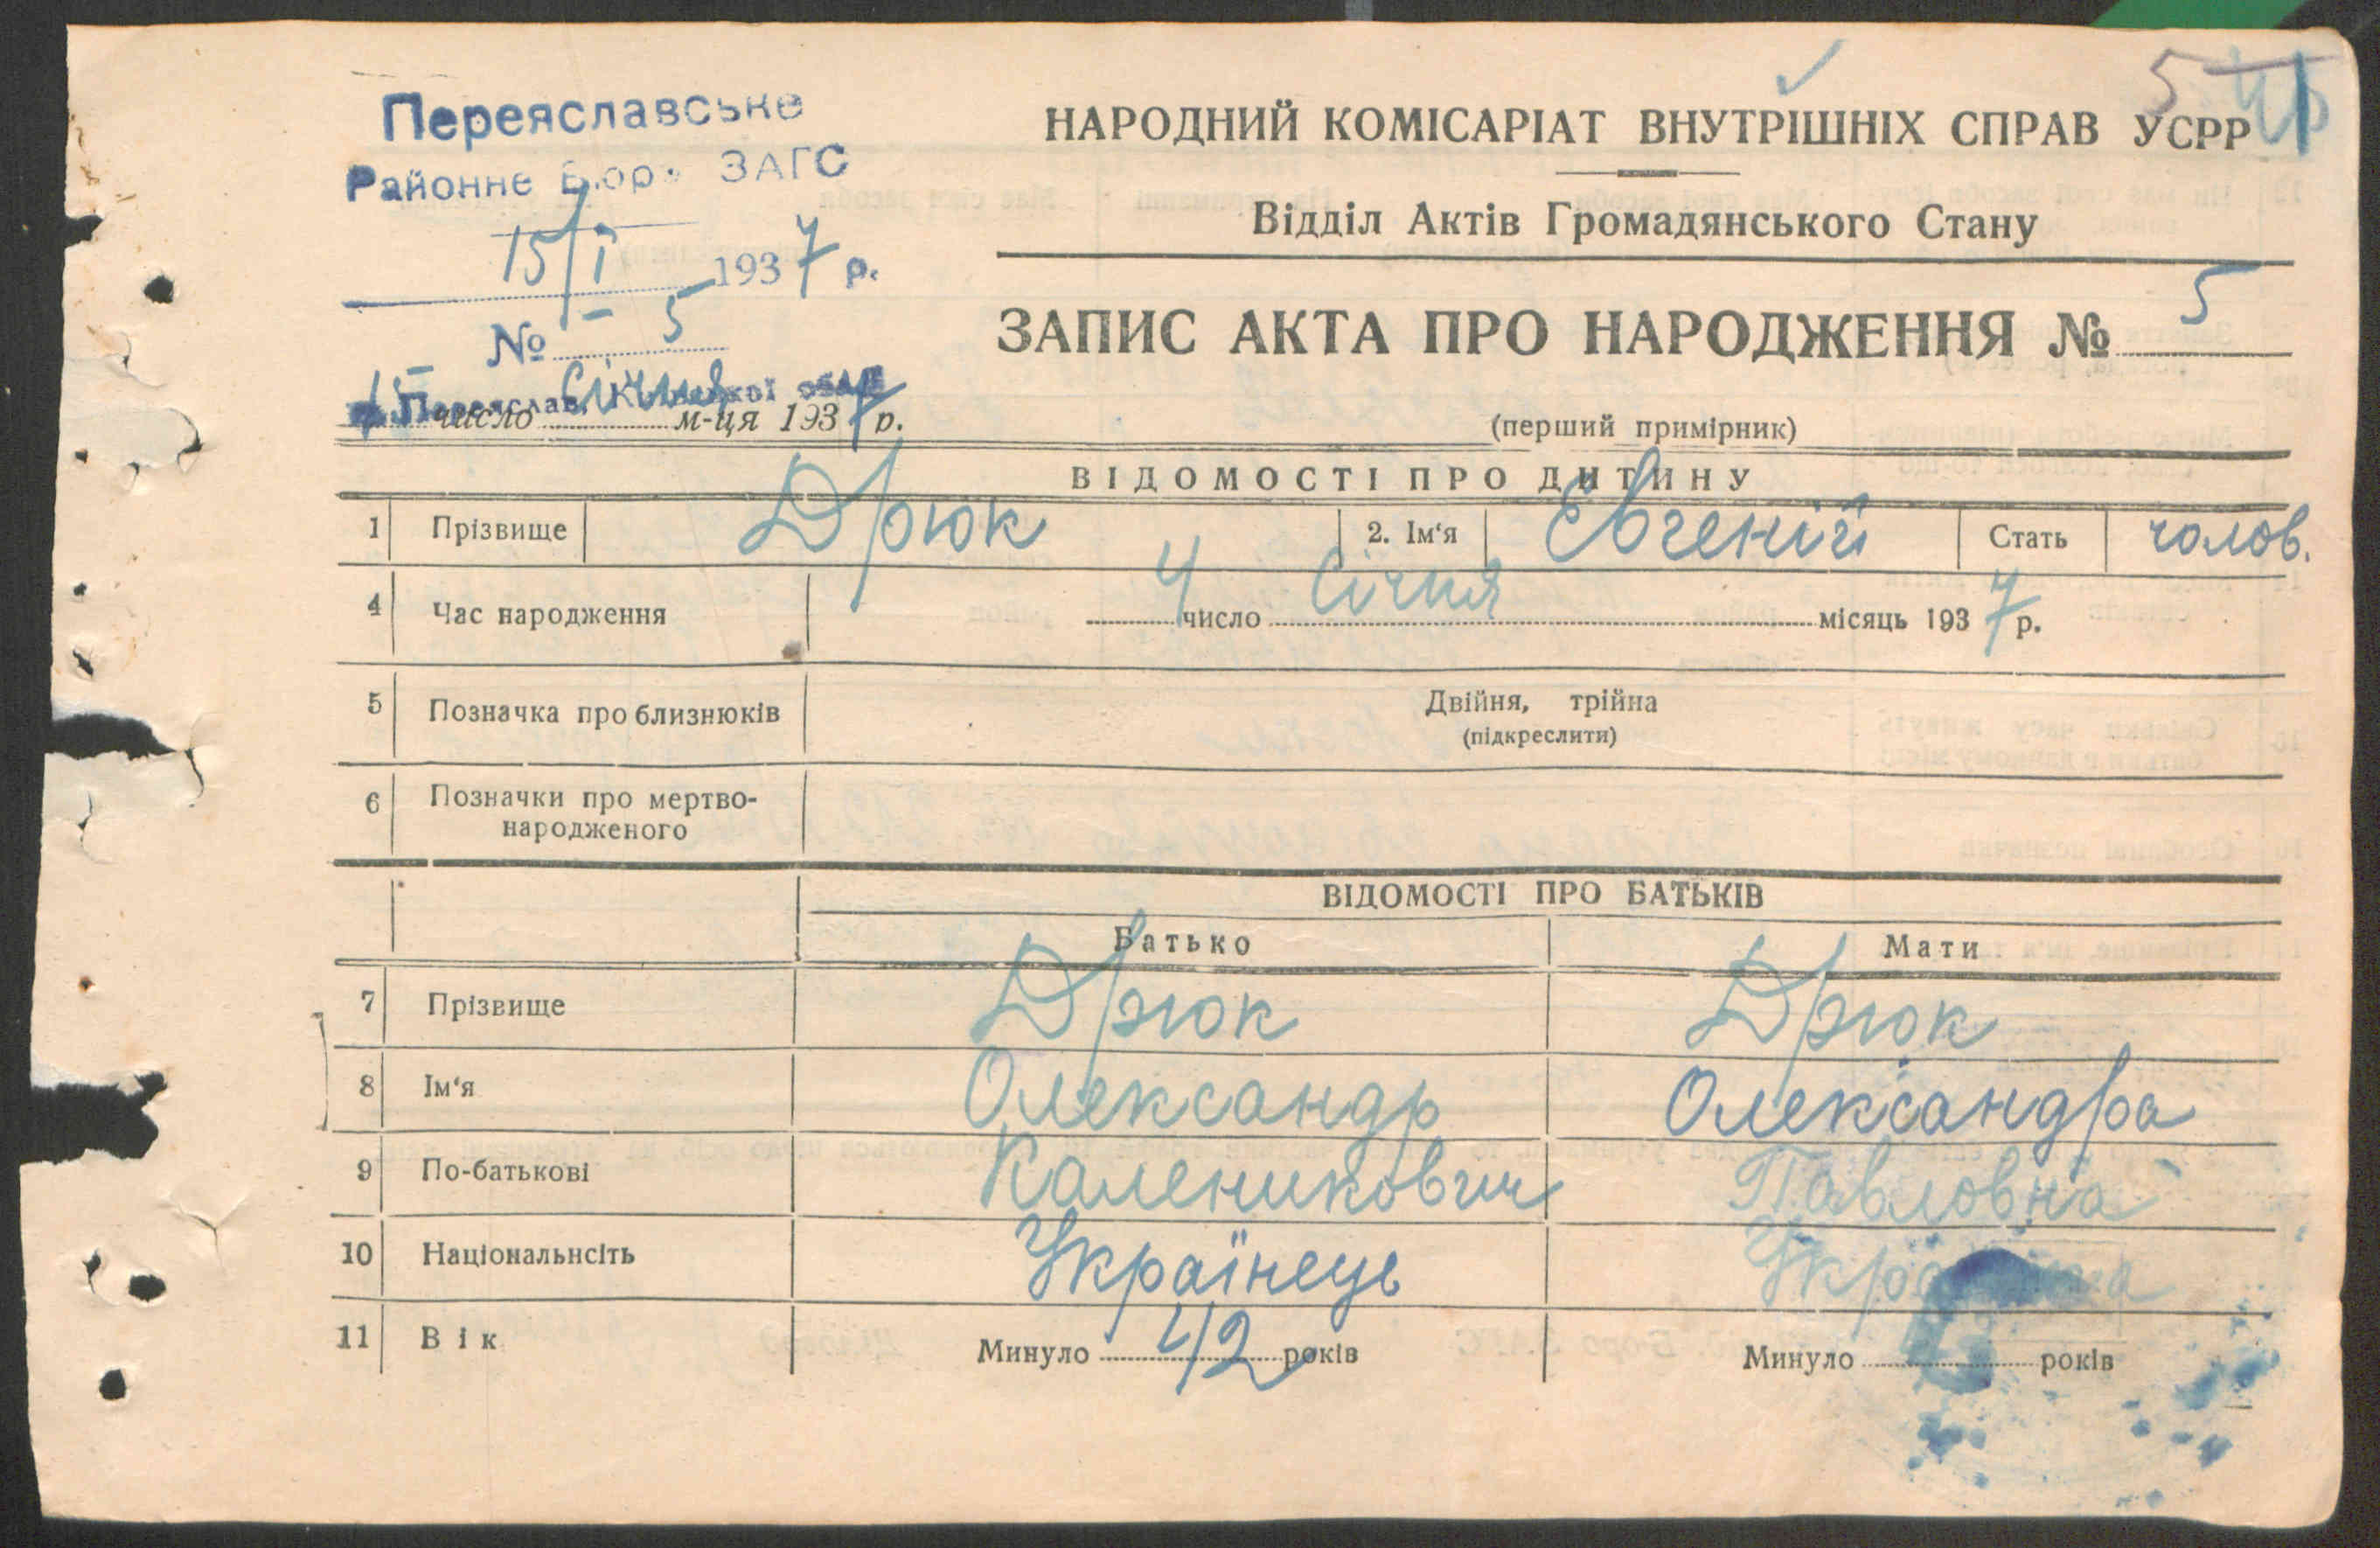 Переяславське
Районне Бюро ЗАГС
15/I 1937 р.
№ 5
м. Переяслав, Київської обл.
15 число Січня м-ця 1937 р.
5
НАРОДНИЙ КОМІСАРІАТ ВНУТРІШНІХ СПРАВ УСРР
Відділ Актів Громадянського Стану
ЗАПИС АКТА ПРО НАРОДЖЕННЯ № 5
(перший примірник)
ВІДОМОСТІ ПРО ДИТИНУ
1 Прізвище Дрюк 2. Ім'я Євгеній Стать чолов.
4 Час народження 4 число Січня місяць 1937 р.
5 Позначка про близнюків Двійня, трійна
(підкреслити)
6 Позначки про мертво-
народженого
ВІДОМОСТІ ПРО БАТЬКІВ
Батько Мати
7 Прізвище Дрюк Дрюк
8 Ім'я Олександр Олександра
9 По-батькові Каленикович Павловна
10 Національнсіть Українець
11 Вік Минуло 42 років Минуло років